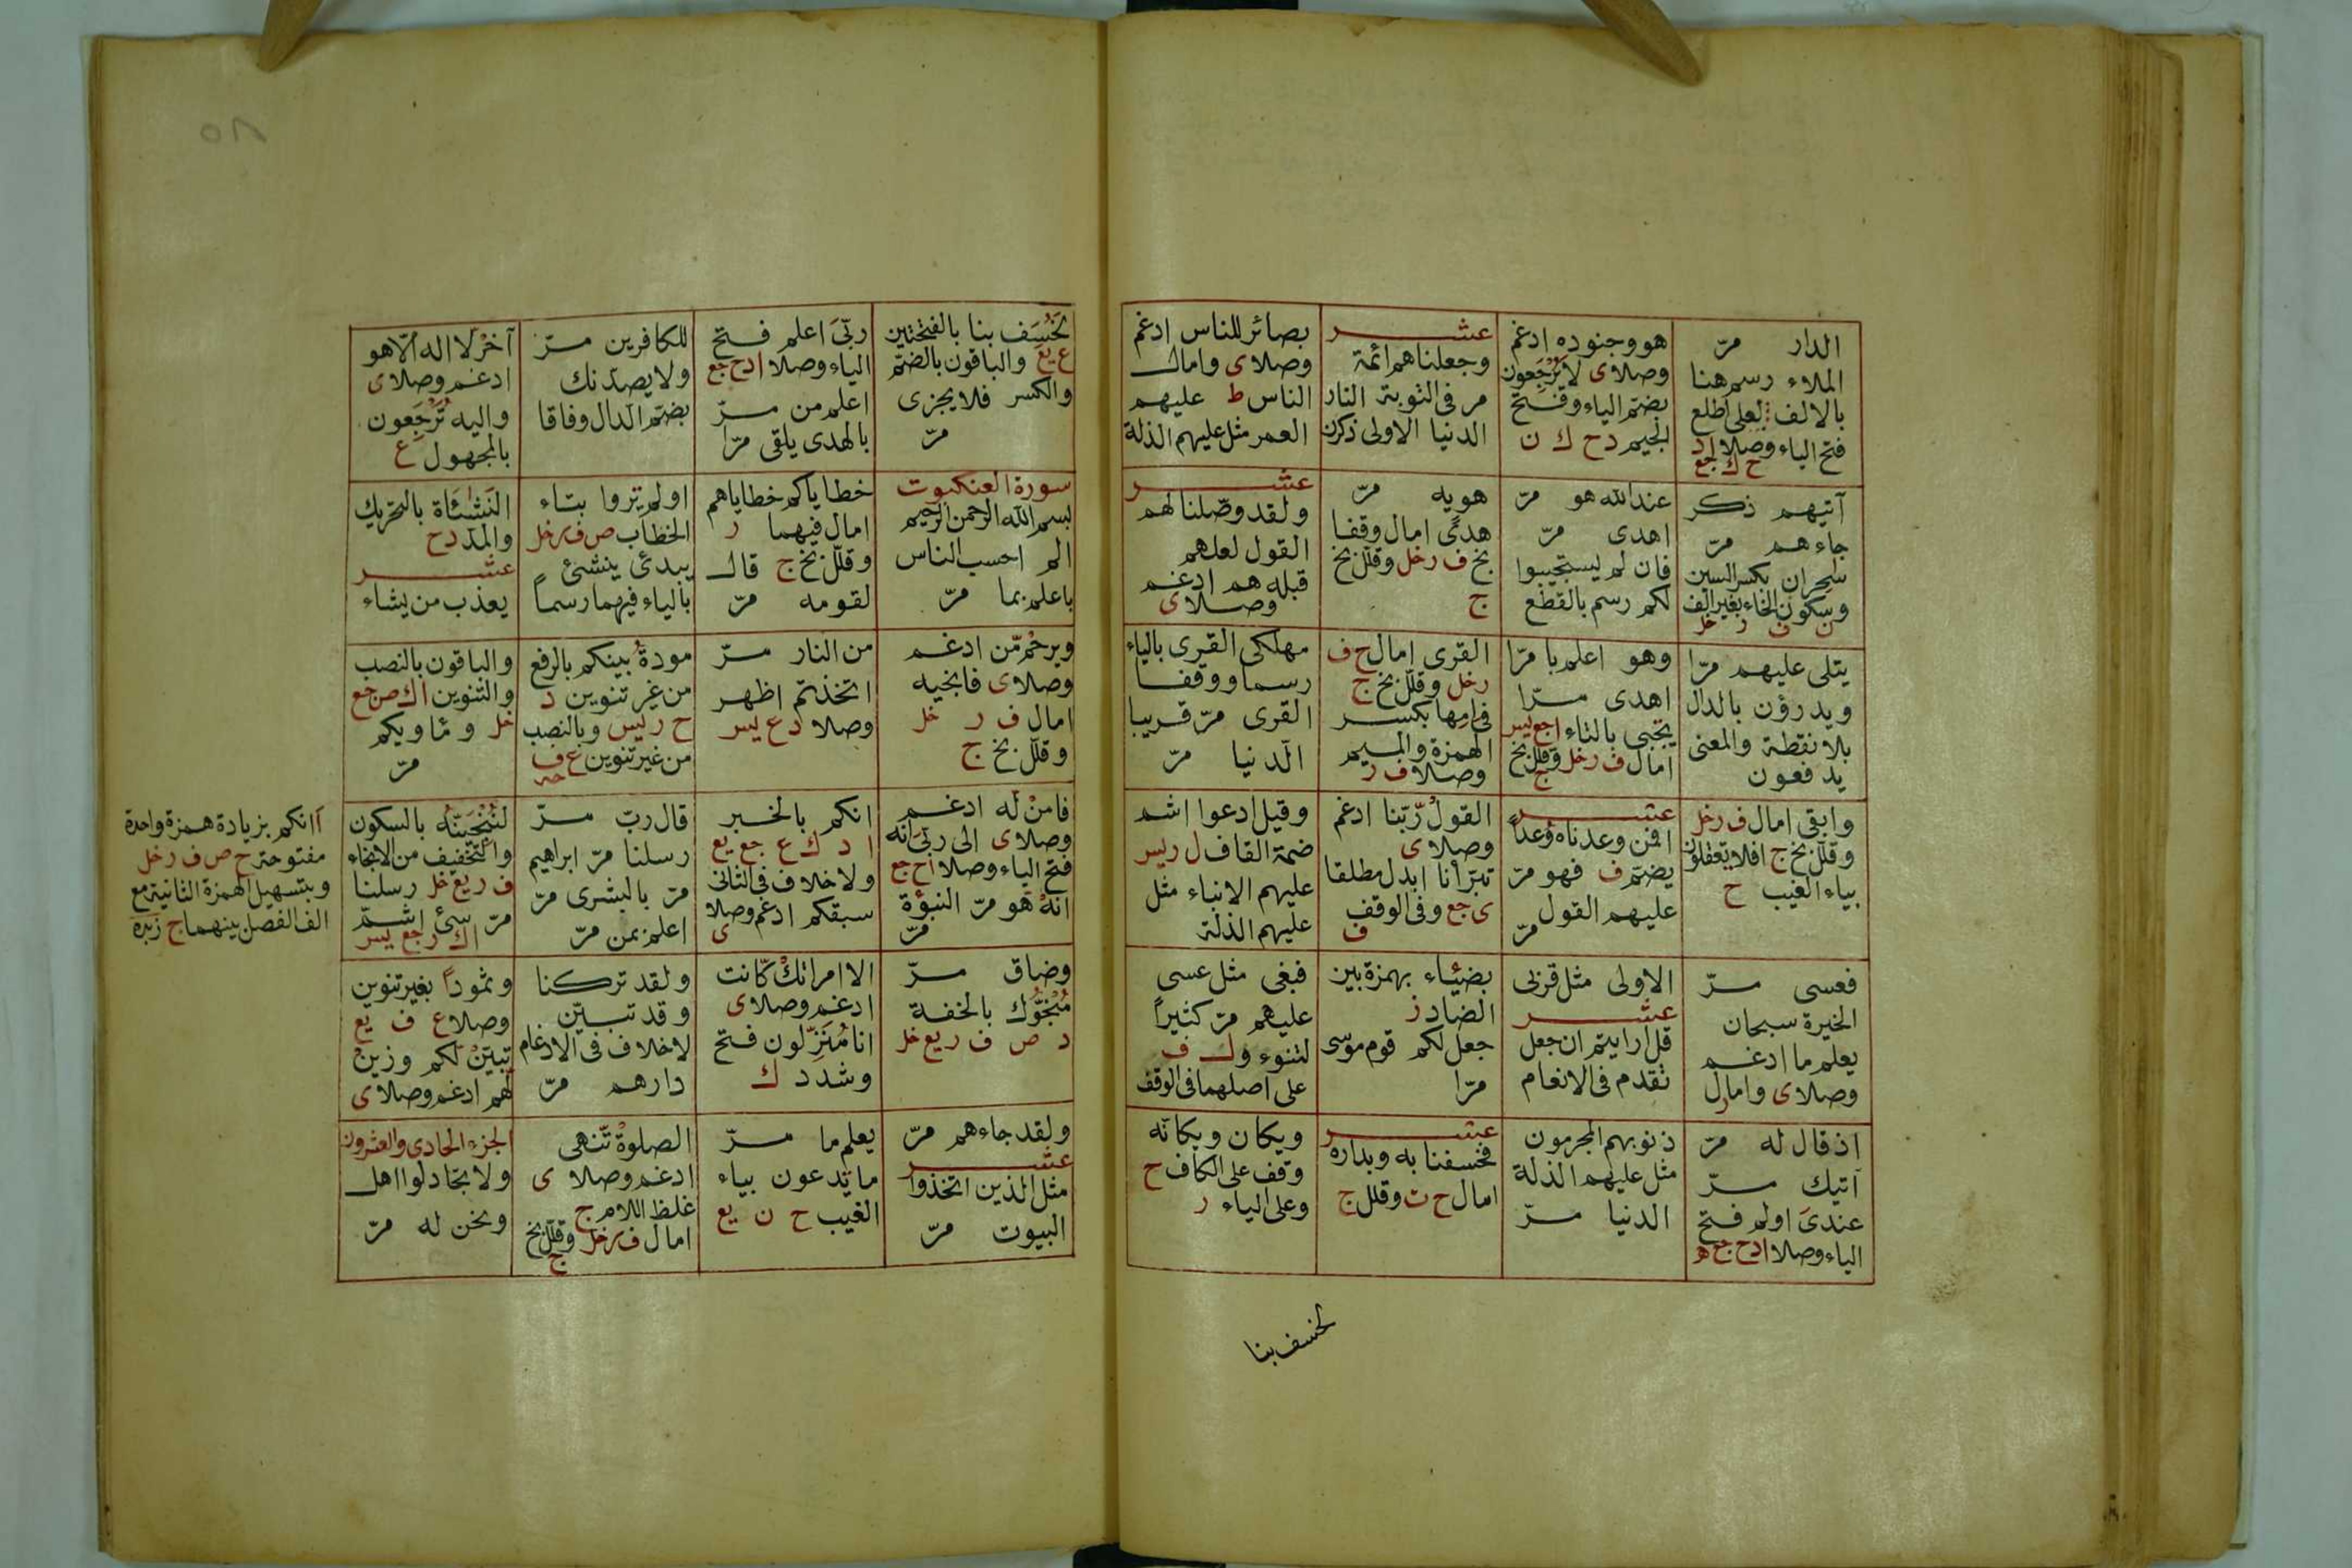 الدار مرّ
الملاء رسم هنا
بالالف لعلى اطلع
فتح الياء وصلا ا د
ح ك جع
هو وجنوده ادغم
وصلا ى لا يرجعون
بضم الياء وفتح
الجيم د ح ك ن
عشر
وجعلناهم ائمة
مر فى التوبة النار
الدنيا الاولى ذكرن
بصائر للناس ادغم
وصلا ى وامال
الناس ط عليهم
العمر مثل عليهم الذلة
آتيهم ذكر
جاءهم مرّ
سحران بكسر السين
وسكون الحاء بغير الف
ن ف ر خل
عند الله هو مرّ
اهدى مرّ
فان لم يستجيبوا
لكم رسم بالقطع
هويه مرّ
هدًى امال وقفا
بخ ف ر خل وقلل بخ
ج
عشر
ولقد وصّلنا لهم
القول لعلهم
قبله هم ادغم
وصلا ى
يتلى عليهم مرّا
ويدرؤن بالدال
بلا نقطة والمعنى
يدفعون
وهو اعلم با مرّا
اهدى مرّا
تجبى بالتاء ا جع يس
امال ف ر خل وقلل بخ
ج
القرى امال ح ف
ر خل وقلل بخ ج
فى امها بكسر
الهمزة والميم
وصلا ف ر
مهلكى القرى بالياء
رسما ووقفا
القرى مرّ قريبا
الدنيا مرّ
وابقى امال ف ر خل
وقلل بخ ج افلا يعقلون
بياء الغيب ح
عشر
افمن وعدناه وعداً
يضم ف فهو مرّ
عليهم القول
مرّ
القول رّبّنا ادغم
وصلا ى
تبرّأنا ابدل مطلقا
ى جع وفى الوقف
ف
وقيل ادعوا اشم
ضمة القاف ل ر يس
عليهم الانباء مثل
عليهم الذلة
فعسى مرّ
الخيرة سبحان
يعلم ما ادغم
وصلا ى وامال
ر
الاولى مثل قربى
عشر
قل ارايتم ان جعل
تقدم فى الانعام
بضئاء بهمزة بين
الضاد ز
جعل لكم قوم موسى
مرّا
فبغى مثل عسى
عليهم مرّ كثيراً
لتنوء و ل ف
على اصلهما فى الوقف
اذ قال له مرّ
آتيك مرّ
عندى اولم فتح
الياء وصلا ا د ح جع ه
ذنوبهم المجرمون
مثل عليهم الذلة
الدنيا مرّ
عشر
فخسفنا به وبداره
امال ح ت وقلل ج
ويكان ويكانّه
وقف على الكاف ح
وعلى الياء ر
لخسف بنا
لخسف بنا بالفتحتين
ع يع والباقون بالضم
والكسر فلا يجزى
مرّ
ربّى اعلم فتح
الياء وصلا ا د ح جع
اعلم من مرّ
بالهدى يلقى مرّا
للكافرين مرّ
ولا يصدّنك
بضم الدال وفاقا
آخر لا اله الّا هو
ادغم وصلا ى
واليه ترجعون
بالمجهول ع
سورة العنكبوت
بسم الله الرحمن الرحيم
الم احسب الناس
باعلم بما مرّ
خطاياكم خطاياهم
امال فيهما ر
وقلل بخ ج قال
لقومه مرّ
اولم تروا بتاء
الخطاب ص ف ر خل
يبدئ ينشئ
بالياء فيهما رسماً
النشئاة بالتحريك
والمدّ د ح
عشر
يعذب من يشاء
ويرحم مّن ادغم
وصلا ى فانجيه
امال ف ر خل
وقلل بخ ج
من النار مرّ
اتخذتم اظهر
وصلا د ع يس
مودة بينكم بالرفع
من غير تنوين د
ح ر يس وبالنصب
من غير تنوين ع ف
حه
والباقون بالنصب
والتنوين ا ك ص جع
خل و مأويكم
مرّ
فامن له ادغم
وصلا ى الى ربى انه
فتح الياء وصلا ا ح جع
انه هو مرّ النبوّة
مرّ
انكم بالخبر
ا د ك ع جع يع
ولا خلاف فى الثانى
سبقكم ادغم وصلا
ى
قال ربّ مرّ
رسلنا مرّ ابراهيم
مرّ بالبشرى مرّ
اعلم بمن مرّ
لننجينّه بالسكون
والتخفيف من الانجاء
ف ر يع خل رسلنا
مرّ سئ اشمّ
ا ك ر جع يس
أانكم بزيادة همزة واحدة
مفتوحة ح ص ف ر خل
وبتسهيل الهمزة الثانية مع
الف الفصل بينهما ح
وضاق مرّ
منجّوك بالخفة
د ص ف ر يع خل
الا امراتك كّانت
ادغم وصلا ى
انا منزّلون فتح
وشدد ك
ولقد تركنا
وقد تبيّن
لا خلاف فى الادغام
دارهم مرّ
وثموداً بغير تنوين
وصلا ع ف يع
تبيّن لّكم وزين
لهم ادغم وصلا ى
ولقد جاءهم مرّ
عشر
مثل الذين اتخذوا
البيوت مرّ
يعلم ما مرّ
ما يدعون بياء
الغيب ح ن يع
الصلوة تّنهى
ادغم وصلا ى
غلظ اللام ج
امال ف ر خل وقلل بخ
ج
الجزء الحادى والعشرون
ولا تجادلوا اهل
ونحن له مرّ